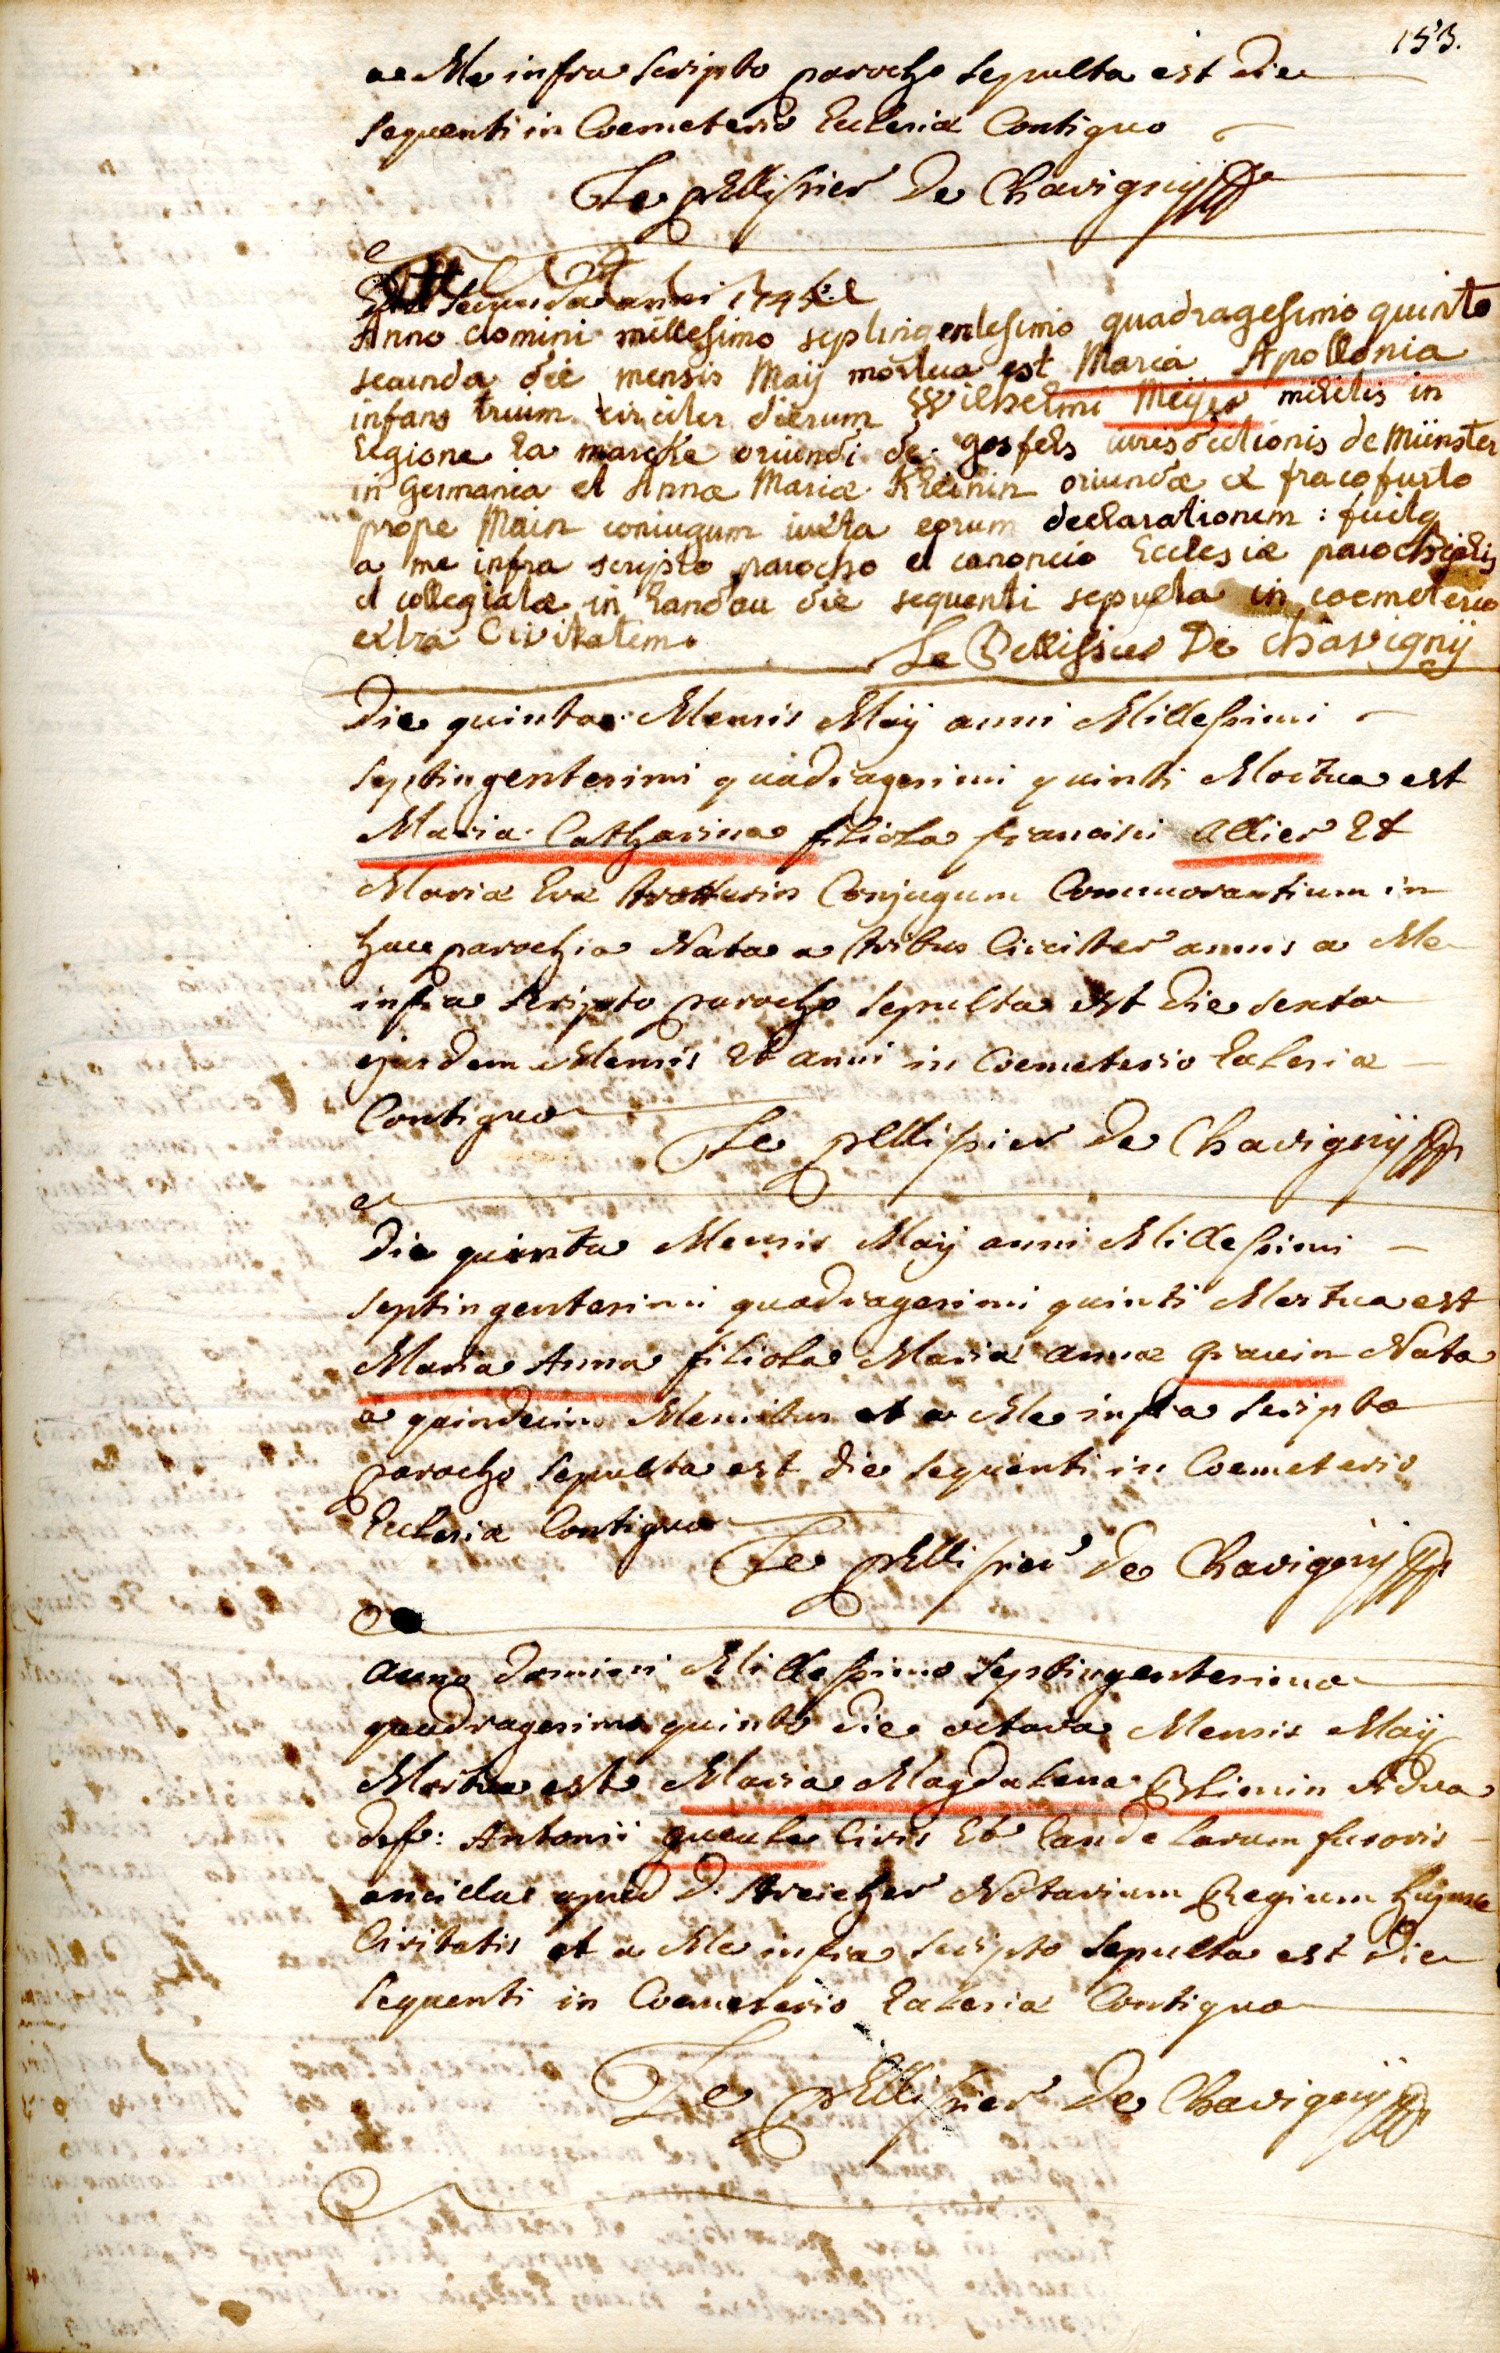 153.
a Me infra scripto parocho sepulta est die
sequenti in Coemeterio Ecclesiæ Contiguo
Le pellissier De Chavigny
secunda anni 1745
Anno domini millesimo septingentesimo quadragesimo quinto
secunda die mensis Maÿ mortua est Maria Apollonia
infans trium circiter dierum Wilhelmi Meÿer militis in
legione la marcke oriundi de gosfels iurisdictionis de Münster
in Germania et Annæ Mariæ Kleinin oriundæ ex fracofurto
prope Main coniugum iuxta eorum declarationem : fuitq
a me infra scripto parocho et canonico Ecclesiæ parochialis
et collegiatæ in Landau die sequenti sepulta in coemeterio
extra Civitatem.
Le Pellissier De chavignÿ
Die quinta Mensis Maÿ anni Millessimi
septingentesimi quadragesimi quinti Mortua est
Maria Catharina filiola francisci Allier Et
Mariæ Evæ Conjugum Commorantium in
hac parochia Nata a tribus Circiter annis a Me
infra scripto parocho sepulta est die sexta
ejusdem Mensis Et anni in Coemeterio Ecclesiæ
Contiguo
Le pellissier De Chavignÿ
Die quinta Mensis Maÿ anni Millessimi
septingentesimi quadragesimi quinti Mortua est
Maria Anna filiola Mariæ annæ Grauin Nata
a quindecim Mensibus et a Me infra scripto
parocho sepulta est die sequenti in Coemeterio
Ecclesiæ Contiguo
Le pellissier De Chavignÿ
anno domini Millessimo septingentesimo
quadragesimo quinto die octava Mensis Maÿ
Mortua est Maria Magdalena vidua
def: Antonii gueule Civis Et Candelarum fusoris
ancillae apud D. Streicher Notarium Regium hujusce
Civitatis et a Me infra scripto sepulta est die
sequenti in Coemeterio Ecclesiæ Contiguo
Le pellissier De Chavignÿ